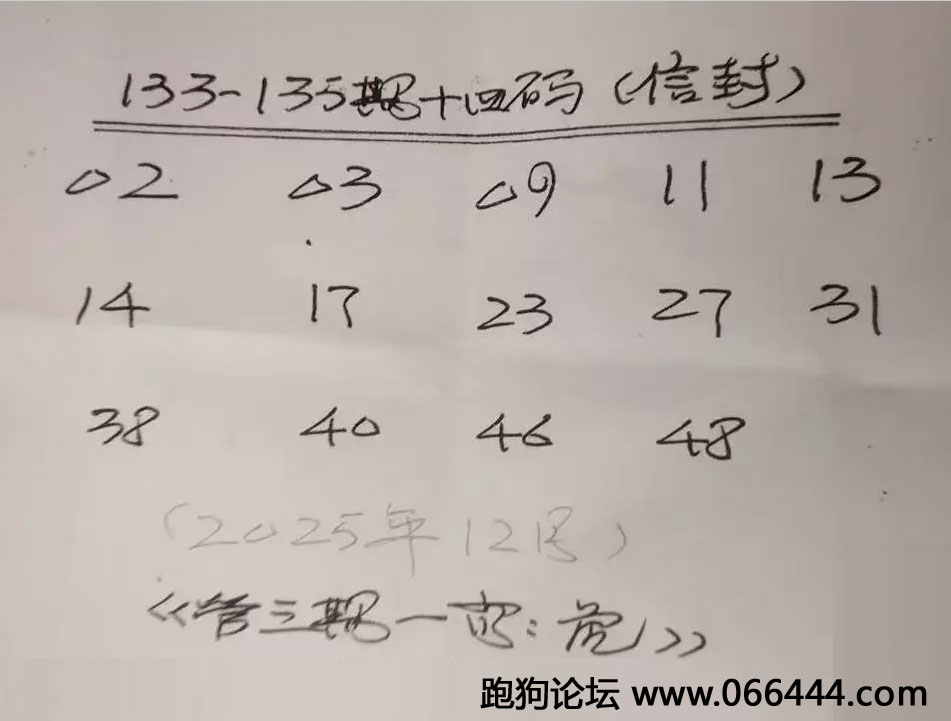 133-135期十四码(信封)
02 03 09 11 13
14 17 23 27 31
38 40 46 48
(2025年12月)
《管三期一肖:虎》
跑狗论坛 www.066444.com